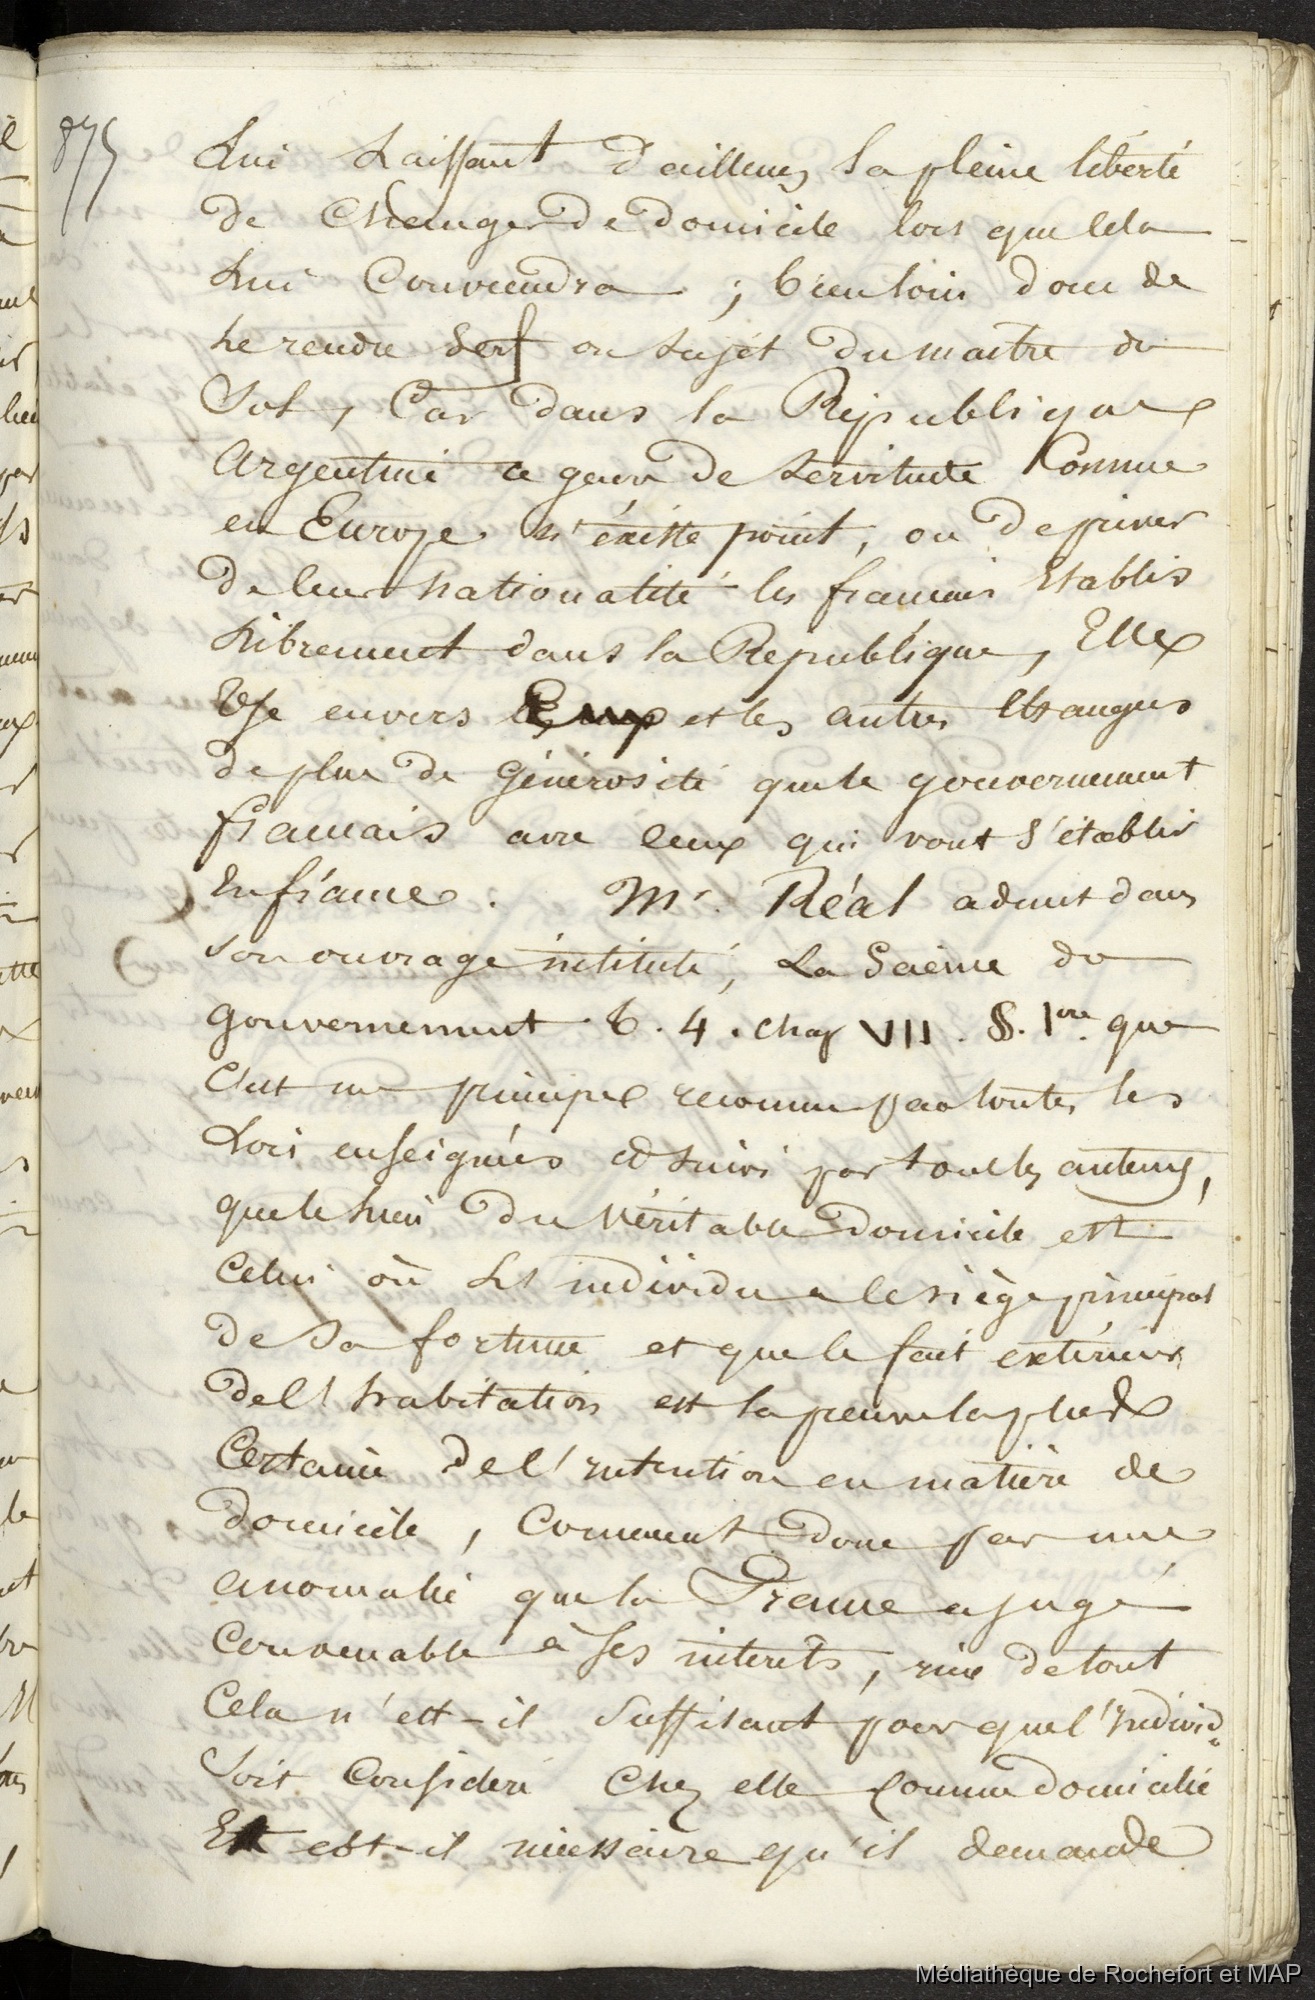 875
Lui Laissant d'ailleurs la pleine liberté
de Changer de domicile lors que Cela
Lui Conviendra ; bien loin donc de
le rendre Serf ou sujet du maitre du
Sol, Car dans la République
Argentine ce genre de servitude Connue
en Europe n'éxiste point, ou de priver
de leur nationalité les français Etablis
Librement dans la République, Elle
Use envers Eux et les autres Etrangers
de plus de Générosité que le gouvernement
français avec Ceux qui vont s'établir
En france. Mr. Réal admet dans
son ouvrage intitulé, La Science du
gouvernement t. 4. chap VII. §. 1er. que
c'est un principe reconnu par toutes les
Lois enseignées et suivi par tous les auteurs,
que le lieu du véritable domicile est
Celui où L'individu a le siège principal
de Sa fortune et que le fait extérieur
de l'habitation est la preuve la plus
Certaine de l'intention en matière de
domicile, Comment donc par une
anomalie que la France a jugé
Convenable à ses intérêts, rien de tout
Cela n'est-il suffisant pour que l'individ=
soit Considéré Chez elle Comme domicilié
Et est-il nécessaire qu'il demande
Médiathèque de Rochefort et MAP